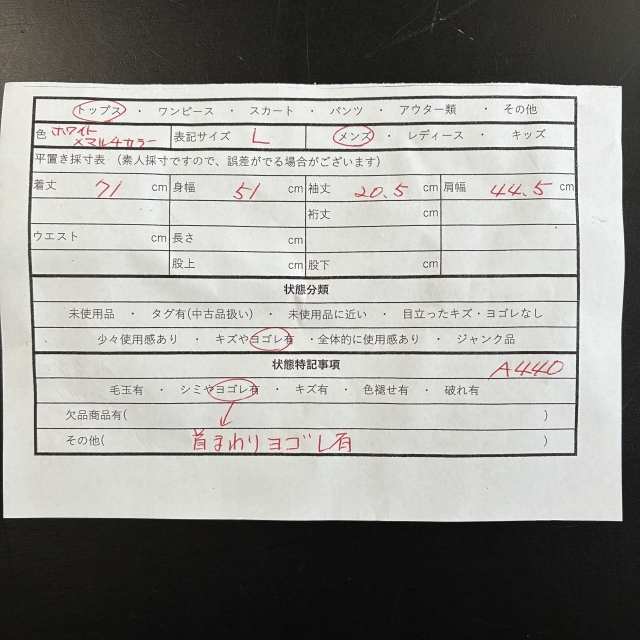 トップス ・ ワンピース ・ スカート ・ パンツ ・ アウター類 ・ その他
色 ホワイト×マルチカラー 表記サイズ L メンズ ・ レディース ・ キッズ
平置き採寸表 （素人採寸ですので、誤差がでる場合がございます）
着丈 71 cm 身幅 51 cm 袖丈 20.5 cm 肩幅 44.5 cm
裄丈 cm
ウエスト cm 長さ cm
股上 cm 股下 cm
状態分類
未使用品 ・ タグ有(中古品扱い) ・ 未使用に近い ・ 目立ったキズ・ヨゴレなし
少々使用感あり ・ キズやヨゴレ有 ・全体的に使用感あり ・ ジャンク品
状態特記事項 A440
毛玉有 ・ シミやヨゴレ有 ・ キズ有 ・ 色褪せ有 ・ 破れ有
欠品商品有( )
その他( 首まわりヨゴレ有 )